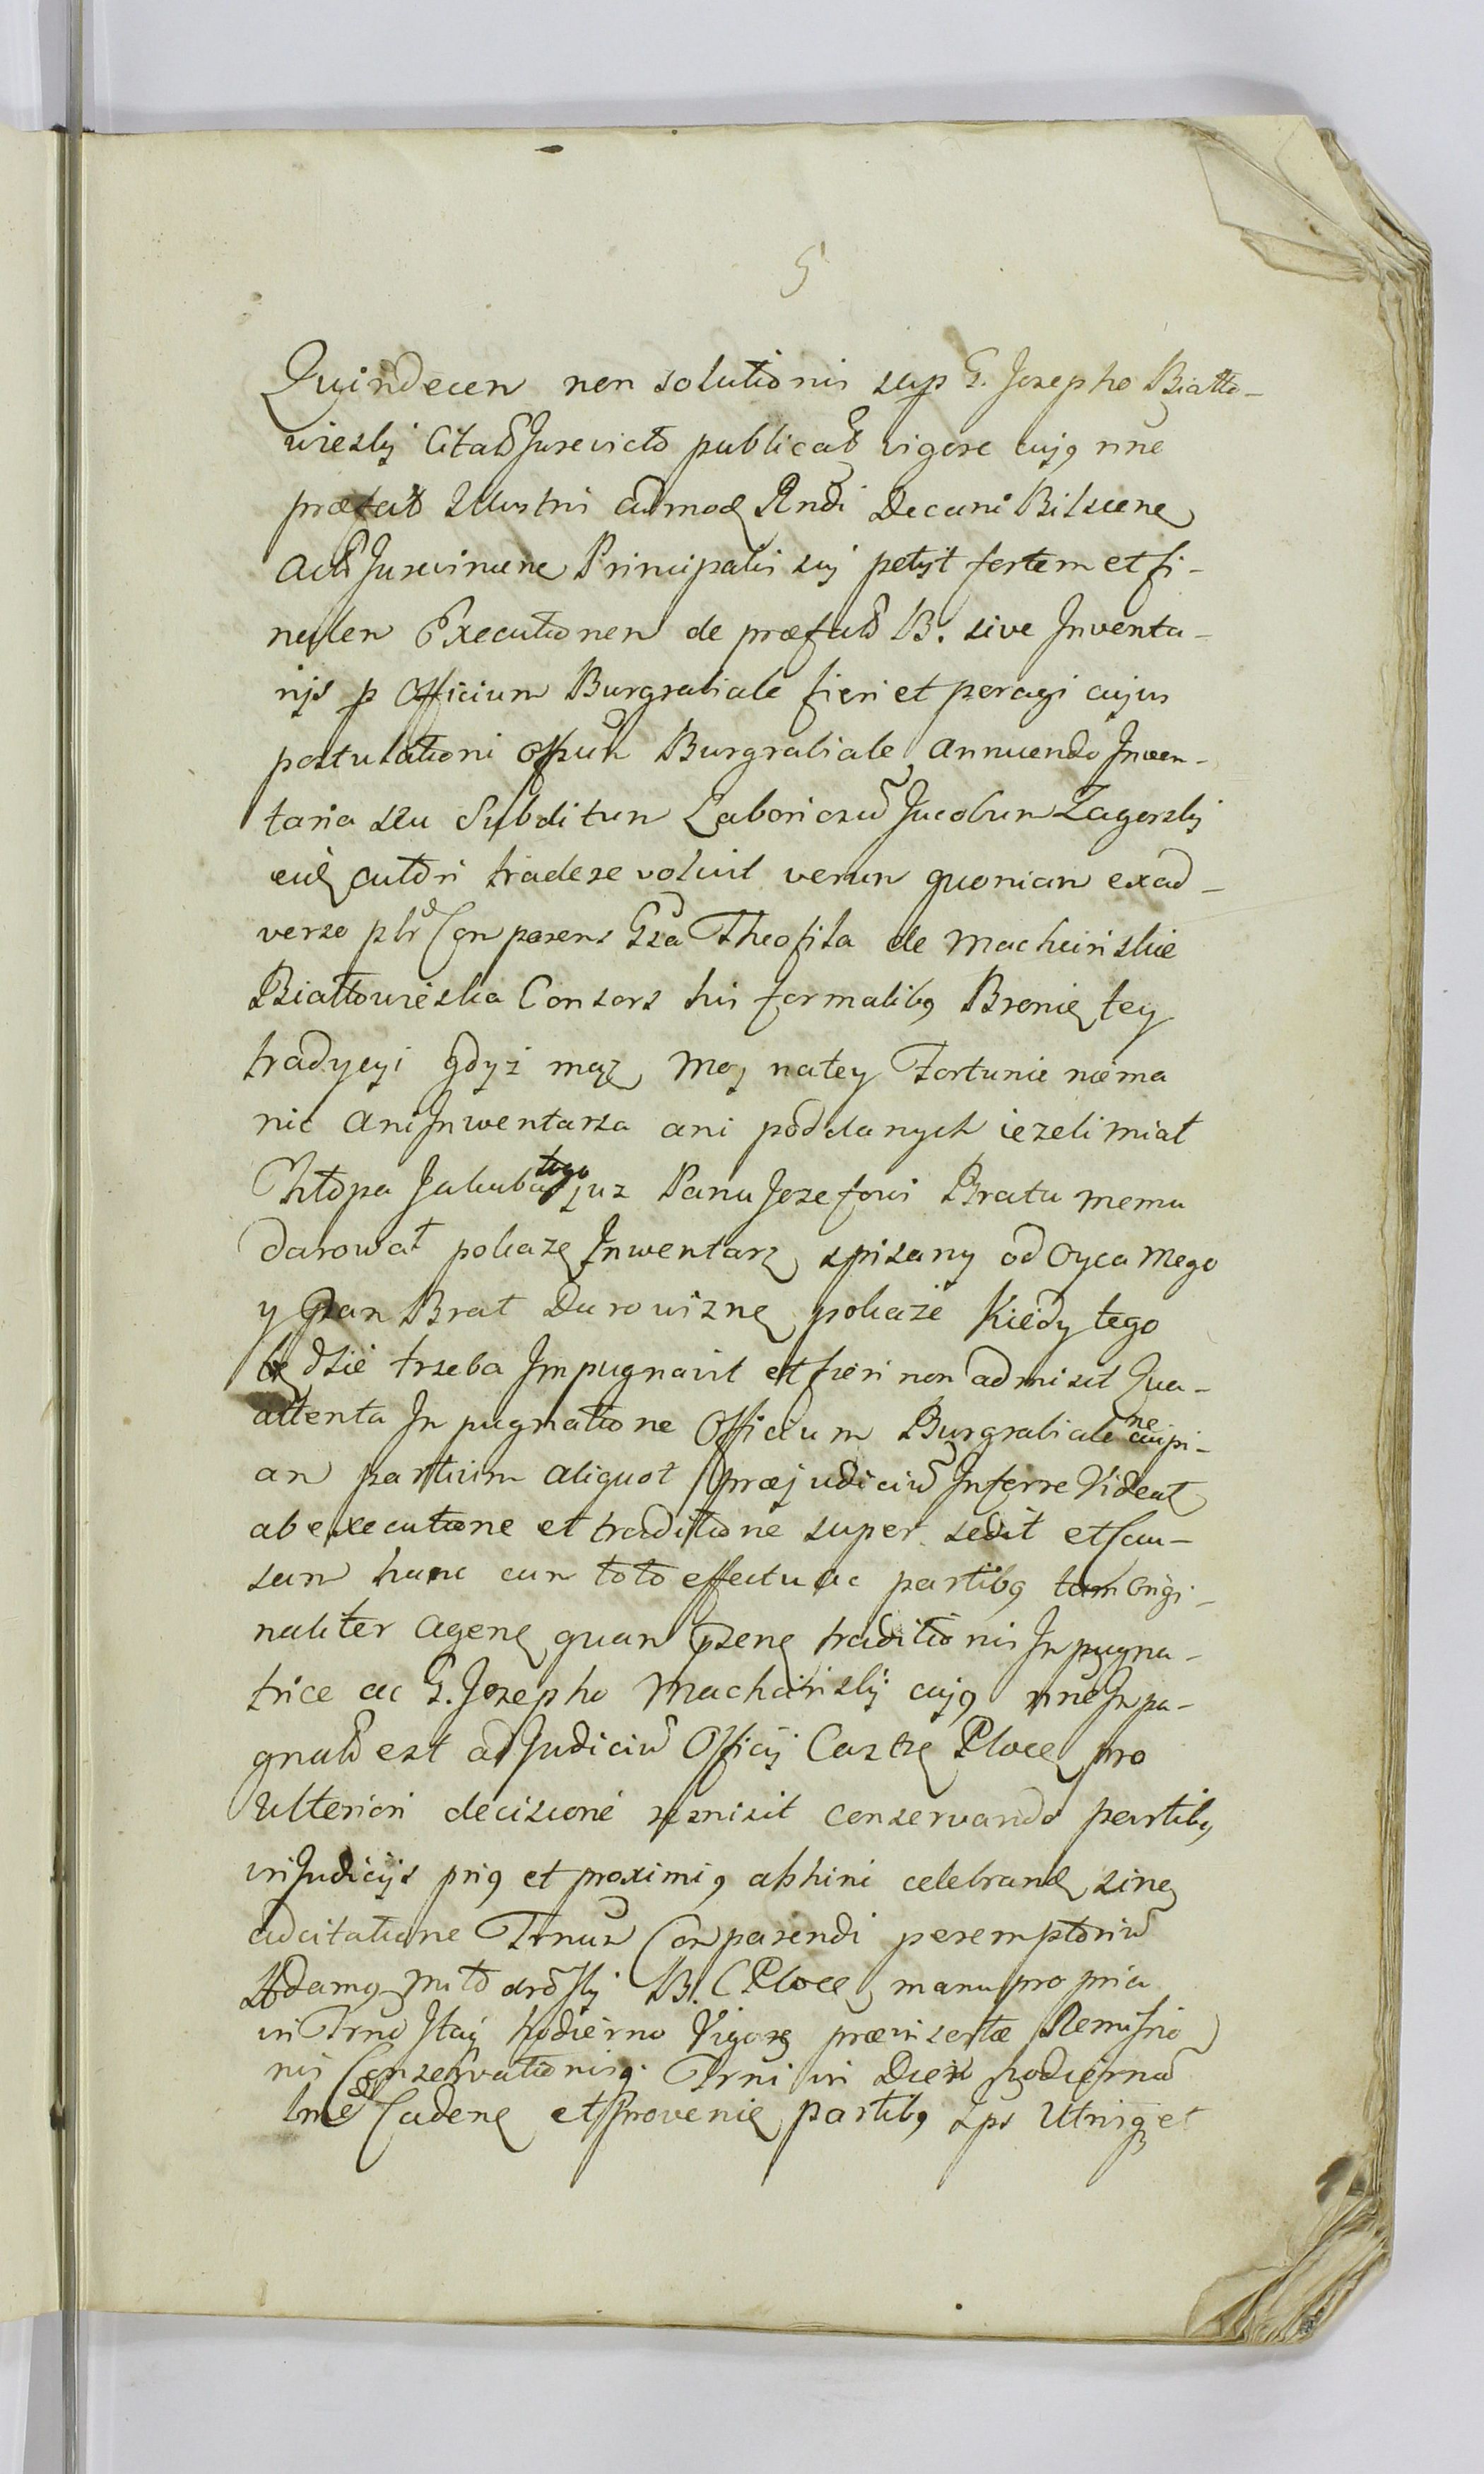 5
Quindecem non solutionis sup G. Josepho Biatto-
wieskij Citato Jurevicto publicato vigore cujq nne
præfato Illustri admod Rndi Decani Bilscen
Acto Jurevincen Principalis sui petyt fortem et fi-
nalem Executionem de præfato B. sive Inventa-
rijs p Officium Burgrabiale fieri et peragi cujus
postulationi Offium Burgrabiale annuendo Inven-
taria seu Subditum Laboriosu Jacobum Zagorskij
eid actori tradere voluit verum quoniam exad-
verso plr Comparens Gsa Theofila de Machcinskie
Białłowieska Consors his formalibq Bronię tey
tradycyi gdyż mąż moj natey Fortunie niema
nic ani Inwentarza ani poddanych iezeli miał
Chłopa Jakuba tego juz Panu Jozefowi Bratu memu
darował pokazę Inwentarz spisany od Oyca Mego
y Pan Brat Darowiznę pokaże Kiedy tego
będzie trzeba Impugnavit et fieri non admisit Qua-
attenta Impugnatione Officium Burgrabiale ne cuipi-
am partium aliquot præjudiciu Inferre Videat
ab executione et traditione super sedit et Cau-
sam hanc cum toto effectu ac partibq tam Origi-
naliter Agen quam psen traditionis Impugna-
trice ac G. Josepho Machcinskij cujq nne Impu-
gnato est ad Judiciu Officij Castr Ploce pro
Ulteriori decisione remisit conservando partibq
in Judicijs priq et proximiq abhinc celebrand sine
adcitatione Trnum Comparendi peremptoriu
Adamq B. C Ploce manu propria
in Trno Itaq hodierno Vigore præinsertæ Remissio
nis Conservationisq Trni in Diem hodierna
lme Caden et Provenien partibq Ips Utrisq et